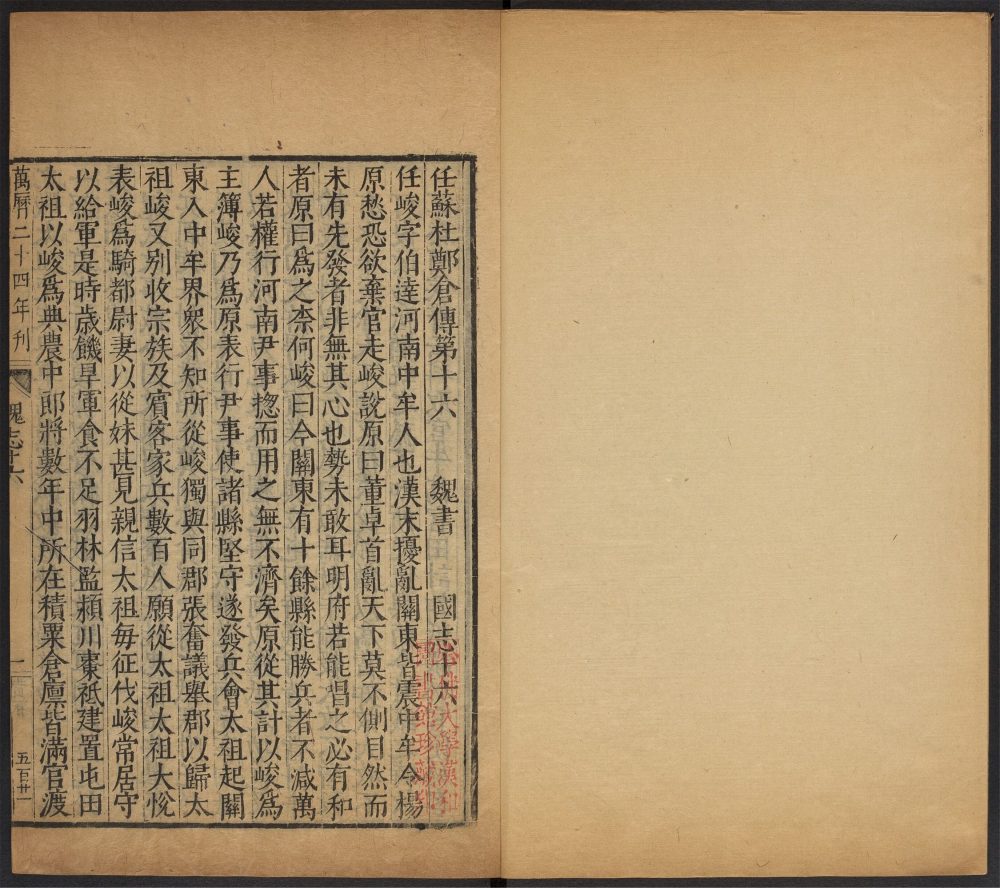 任蘇杜鄭倉傳第十六 魏書 國志十六
任峻字伯達河南中牟人也漢末擾亂關東皆震中牟令楊
原愁恐欲棄官走峻說原曰董卓首亂天下莫不側目然而
未有先發者非無其心也勢未敢耳明府若能唱之必有和
者原曰爲之柰何峻曰今關東有十餘縣能勝兵者不減萬
人若權行河南尹事揔而用之無不濟矣原從其計以峻爲
主簿峻乃爲原表行尹事使諸縣堅守遂發兵會太祖起關
東入中牟界衆不知所從峻獨與同郡張奮議舉郡以歸太
祖峻又別收宗族及賔客家兵數百人願從太祖太祖大悅
表峻爲騎都尉妻以從妹甚見親信太祖毎征伐峻常居守
以給軍是時歲饑旱軍食不足羽林監潁川棗祗建置屯田
太祖以峻爲典農中郎將數年中所在積粟倉廪皆滿官渡
萬曆二十四年刋
魏志十六
一
五百廿一
大學漢和
圖書館珍藏印